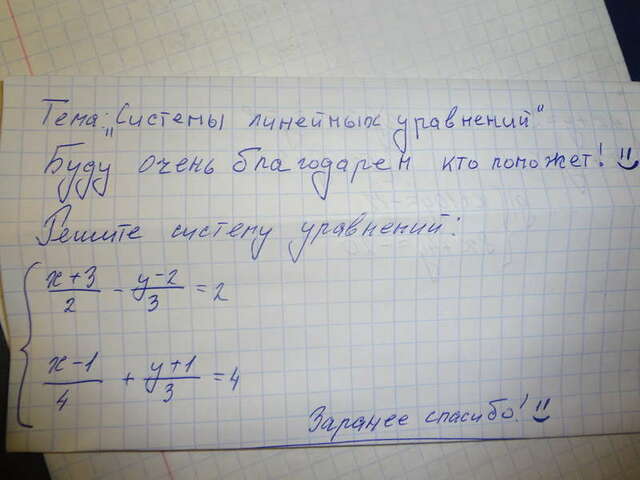 Тема: „Системы линейных уравнений"
Буду очень благодарен кто поможет! :)
Решите систему уравнений:
{ (x+3)/2 - (y-2)/3 = 2
(x-1)/4 + (y+1)/3 = 4
Заранее спасибо! :)